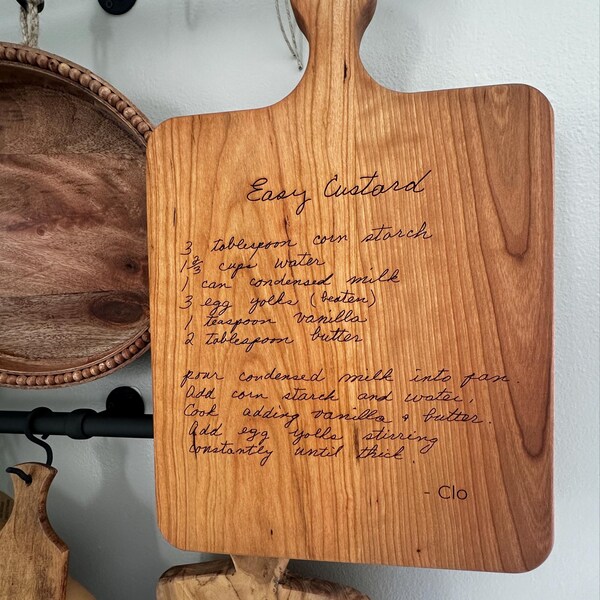 Easy Custard
3 tablespoon corn starch
1 2/3 cups water
1 can condensed milk
3 egg yolks (beaten)
1 teaspoon vanilla
2 tablespoon butter
pour condensed milk into pan.
Add corn starch and water,
Cook adding vanilla & butter.
Add egg yolks stirring
constantly until thick.
- Clo